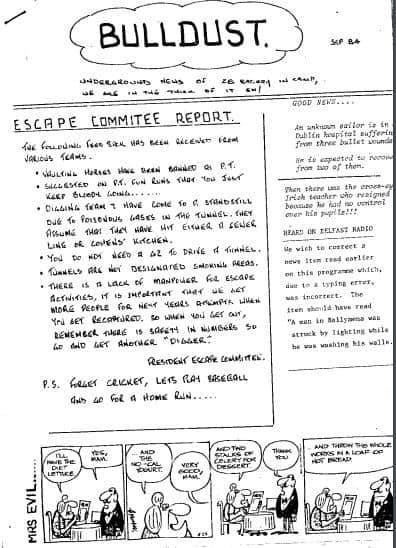 BULLDUST.
SEP 84
UNDERGROUND NEWS OF 28 BATTERY IN CAMP,
WE ARE IN THE THICK OF IT EH!
ESCAPE COMMITEE REPORT.
THE FOLLOWING FEED BACK HAS BEEN RECEIVED FROM
VARIOUS TEAMS.
• VAULTING HORSES HAVE BEEN BANNED AS P.T.
• SUGGESTED ON P.T. FUN RUNS THAT YOU JUST
KEEP BLOODY GOING.......
• DIGGING TEAM 7 HAVE COME TO A STANDSTILL
DUE TO POISONOUS GASES IN THE TUNNEL. THEY
ASSUME THAT THEY HAVE HIT EITHER A SEWER
LINE OR COHENS' KITCHEN.
• YOU DO NOT NEED A G2 TO DRIVE A TUNNEL.
• TUNNELS ARE NOT DESIGNATED SMOKING AREAS.
• THERE IS A LACK OF MANPOWER FOR ESCAPE
ACTIVITIES, IT IS IMPORTANT THAT WE GET
MORE PEOPLE FOR NEXT YEARS ATTEMPTS WHEN
YOU GET RECAPTURED. SO WHEN YOU GET OUT,
REMEMBER THERE IS SAFETY IN NUMBERS SO
GO AND GET ANOTHER "DIGGER".
PRESIDENT ESCAPE COMMITTEE.
P.S. FORGET CRICKET, LETS PLAY BASEBALL
AND GO FOR A HOME RUN.....
GOOD NEWS....
An unknown sailor is in
Dublin hospital sufferin
from three bullet wounds
He is expected to recove
from two of them.
Then there was the cross-ey
Irish teacher who resigned
because he had no control
over his pupils!!!
HEARD ON BELFAST RADIO
We wish to correct a
news item read earlier
on this programme which,
due to a typing error,
was incorrect. The
item should have read
"A man in Ballymena was
struck by lighting while
he was washing his walls.
MRS EVIL......
I'LL HAVE THE DIET LETTUCE.
YES, MA'M.
...AND THE NO-CAL YOGURT.
VERY GOOD, MA'M.
AND TWO STALKS OF CELERY FOR DESSERT.
THANK YOU
...AND THROW THE WHOLE WORKS IN A LOAF OF HOT BREAD.